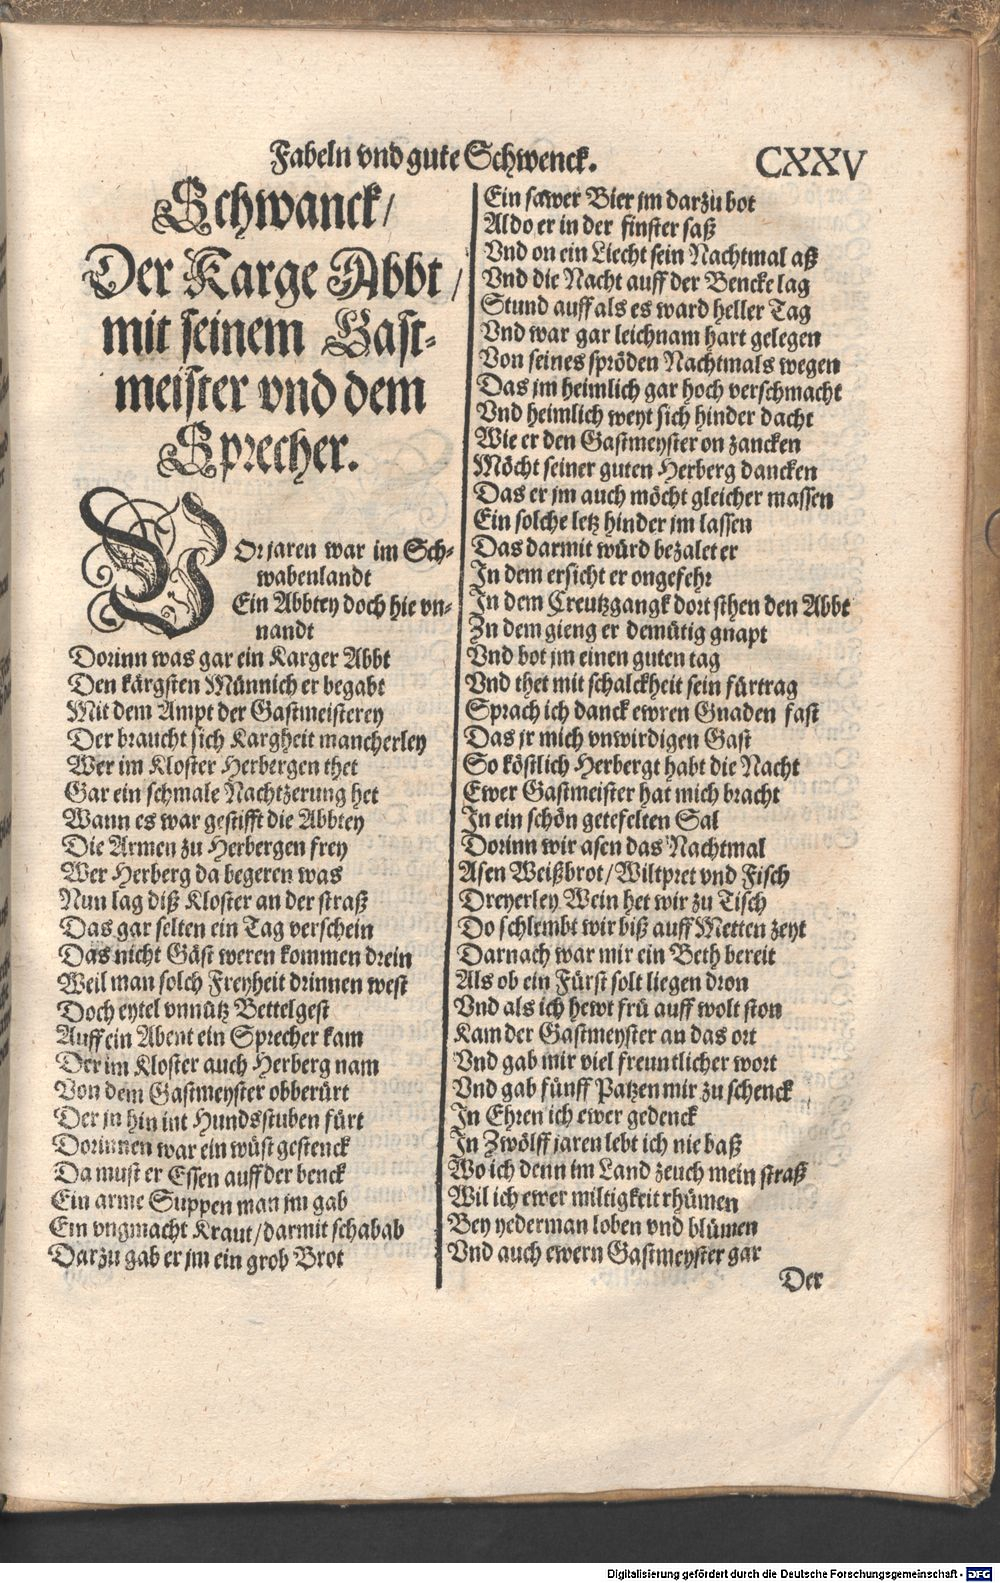 Fabeln vnd gute Schwenck. CXXV
Schwanck/
Der Karge Abbt/
mit seinem Gast-
meister vnd dem
Sprecher.
VOr jaren war im Sch-
wabenlandt
Ein Abbtey doch hie vn-
nandt
Dorinn was gar ein Karger Abbt
Den kärgsten Münnich er begabt
Mit dem Ampt der Gastmeisterey
Der braucht sich Kargheit mancherley
Wer im Kloster Herbergen thet
Gar ein schmale Nachtzerung het
Wann es war gestifft die Abbtey
Die Armen zu Herbergen frey
Wer Herberg da begeren was
Nun lag diß Kloster an der straß
Das gar selten ein Tag verschein
Das nicht Gäst weren kommen drein
Weil man solch Freyheit drinnen west
Doch eytel vnnütz Bettelgest
Auff ein Abent ein Sprecher kam
Der im Kloster auch Herberg nam
Von dem Gastmeyster obberürt
Der jn hin int Hundsstuben fürt
Dorinnen war ein wüst gestenck
Da must er Essen auff der benck
Ein arme Suppen man jm gab
Ein vngmacht Kraut/darmit schabab
Darzu gab er jm ein grob Brot
Ein sawer Bier jm darzu bot
Aldo er in der finster saß
Vnd on ein Liecht sein Nachtmal aß
Vnd die Nacht auff der Bencke lag
Stund auff als es ward heller Tag
Vnd war gar leichnam hart gelegen
Von seines spröden Nachtmals wegen
Das jm heimlich gar hoch verschmacht
Vnd heimlich weyt sich hinder dacht
Wie er den Gastmeyster on zancken
Möcht seiner guten Herberg dancken
Das er jm auch möcht gleicher massen
Ein solche letz hinder jm lassen
Das darmit würd bezalet er
In dem ersicht er ongefehr
In dem Creutzgangk dort sthen den Abbt
Zu dem gieng er demütig gnapt
Vnd bot jm einen guten tag
Vnd thet mit schalckheit sein fürtrag
Sprach ich danck ewren Gnaden fast
Das jr mich vnwirdigen Gast
So köstlich Herbergt habt die Nacht
Ewer Gastmeister hat mich bracht
In ein schön getefelten Sal
Dorinn wir asen das Nachtmal
Asen Weißbrot/Wiltpret vnd Fisch
Dreyerley Wein het wir zu Tisch
Do schlembt wir biß auff Metten zeyt
Darnach war mir ein Beth bereit
Als ob ein Fürst solt liegen dron
Vnd als ich hewt frü auff wolt ston
Kam der Gastmeyster an das ort
Vnd gab mir viel freuntlicher wort
Vnd gab fünff Patzen mir zu schenck
In Ehren ich ewer gedenck
In Zwölff jaren lebt ich nie baß
Wo ich denn im Land zeuch mein straß
Wil ich ewer miltigkeit rhümen
Bey yederman loben vnd blümen
Vnd auch ewern Gastmeyster gar
Der
Digitalisierung gefördert durch die Deutsche Forschungsgemeinschaft - DFG